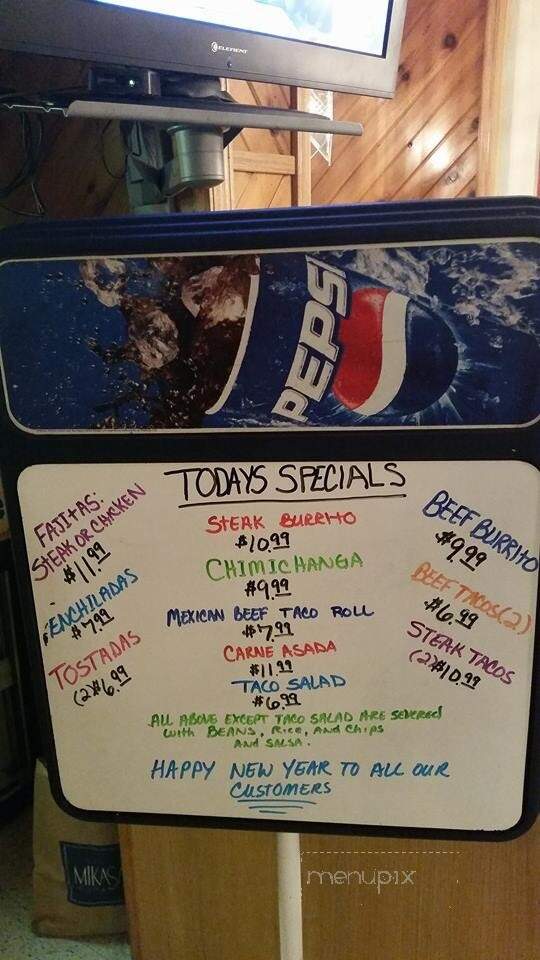 ELEMENT
PEPSI
TODAYS SPECIALS
FAJITAS:
STEAK OR CHICKEN
$11.99
ENCHILADAS
$7.99
TOSTADAS
(2)$6.99
STEAK BURRITO
$10.99
CHIMICHANGA
$9.99
MEXICAN BEEF TACO ROLL
$7.99
CARNE ASADA
$11.99
TACO SALAD
$6.99
BEEF BURRITO
$9.99
BEEF TACOS(2)
$6.99
STEAK TACOS
(2)$10.99
ALL ABOVE EXCEPT TACO SALAD ARE SEVERED
WITH BEANS, RICE, AND CHIPS
AND SALSA.
HAPPY NEW YEAR TO ALL OUR
CUSTOMERS
MIKAS
menupix